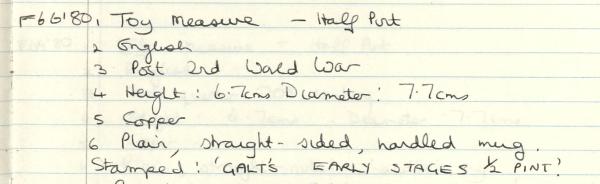 F66'80, Toy measure - Half Pint
2 English
3 Post 2nd World War
4 Height: 6.7cms Diameter: 7.7cms
5 Copper
6 Plain, straight-sided, handled mug.
Stamped: 'GALT'S EARLY STAGES ½ PINT'